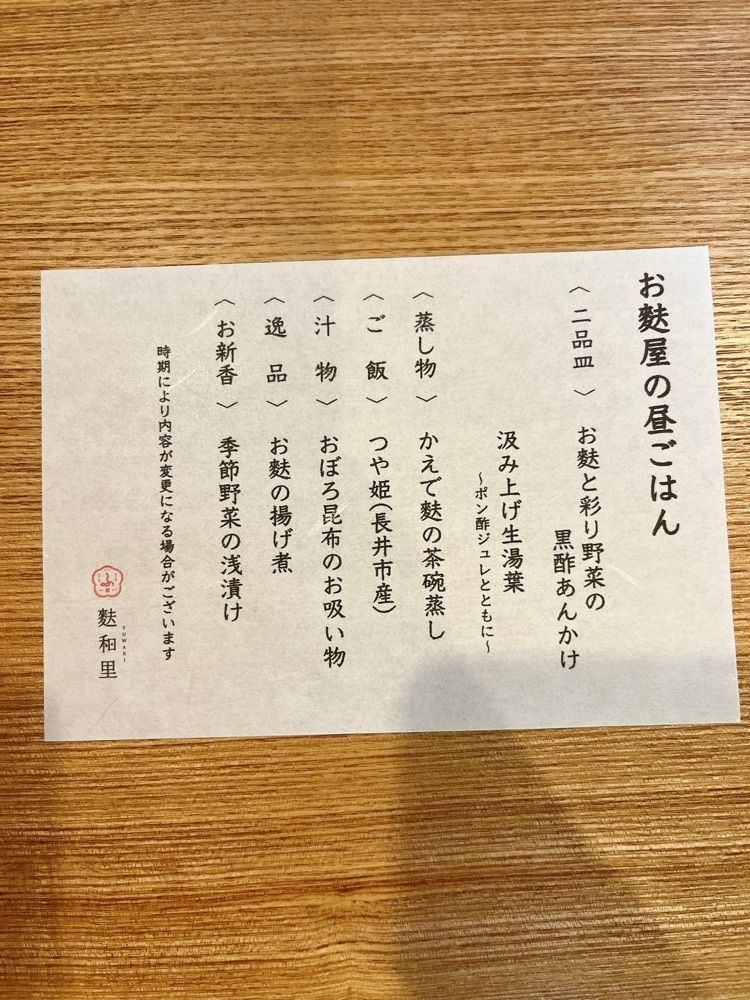 お麩屋の昼ごはん
〈二品皿〉 お麩と彩り野菜の
黒酢あんかけ
汲み上げ生湯葉
~ポン酢ジュレとともに~
〈蒸し物〉 かえで麩の茶碗蒸し
〈ご飯〉 つや姫(長井市産)
〈汁物〉 おぼろ昆布のお吸い物
〈逸品〉 お麩の揚げ煮
〈お新香〉 季節野菜の浅漬け
時期により内容が変更になる場合がございます
麩和里
FUWARI